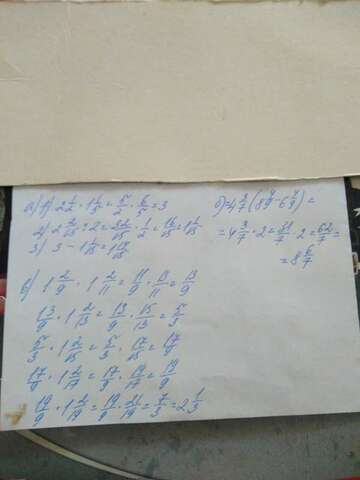 а) 1) 2 1/2 · 1 1/5 = 5/2 · 6/5 = 3
2) 2 2/15 : 2 = 32/15 · 1/2 = 16/15 = 1 1/15
3) 3 - 1 1/15 = 1 14/15
б) = 4 3/7 · (8 4/9 - 6 4/9) =
= 4 3/7 · 2 = 31/7 · 2 = 62/7 =
= 8 6/7
в) 1 2/9 · 1 2/11 = 11/9 · 13/11 = 13/9
13/9 · 1 2/13 = 13/9 · 15/13 = 5/3
5/3 · 1 2/15 = 5/3 · 17/15 = 17/9
17/9 · 1 2/17 = 17/9 · 19/17 = 19/9
19/9 · 1 2/19 = 19/9 · 21/19 = 7/3 = 2 1/3